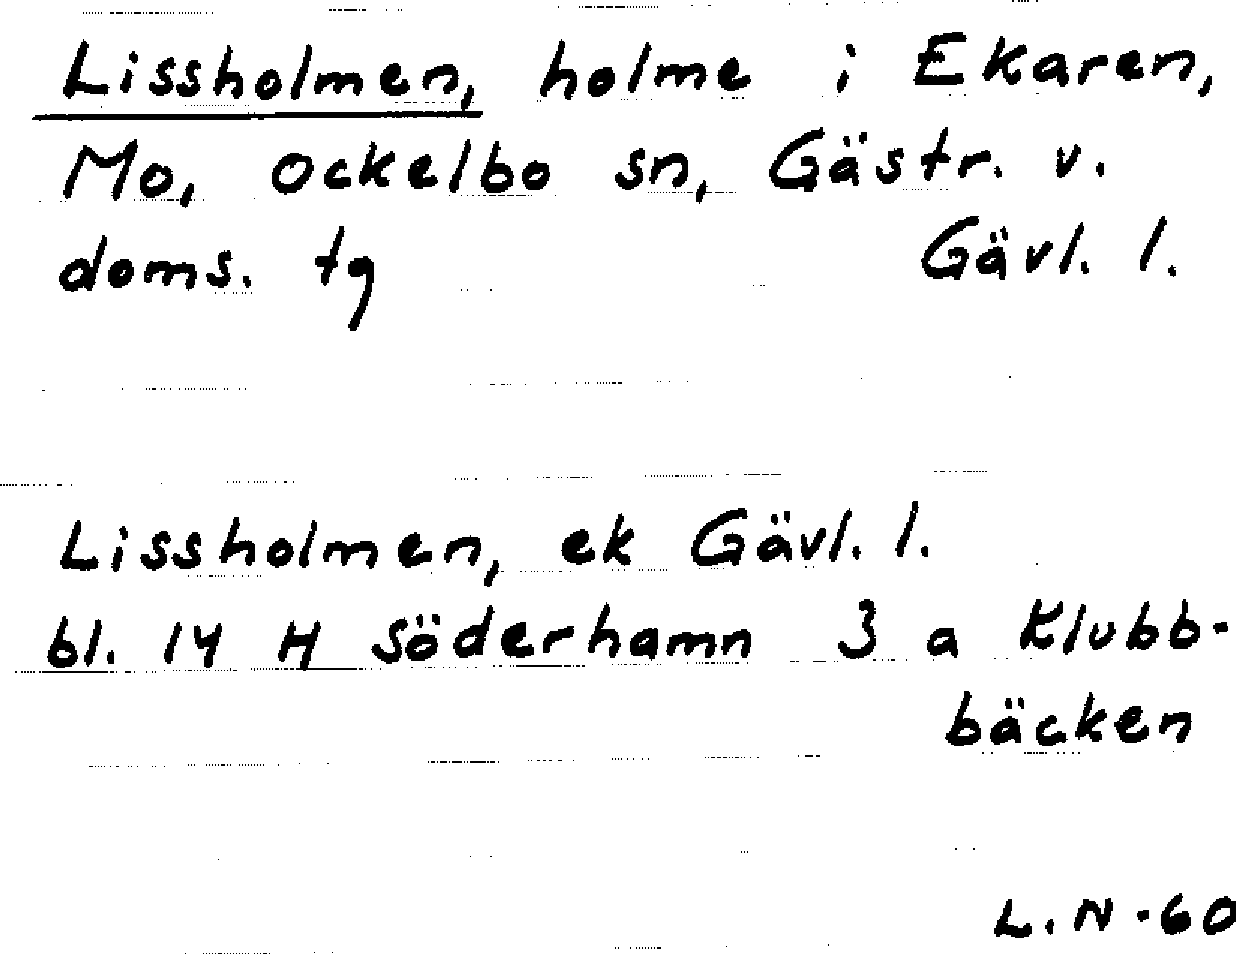 Lissholmen, holme i Ekaren,
Mo, Ockelbo sn, Gästr. v.
doms. tg Gävl. l.
Lissholmen, ek Gävl. l.
bl. 14 H Söderhamn 3 a Klubb-
bäcken
L.N -60